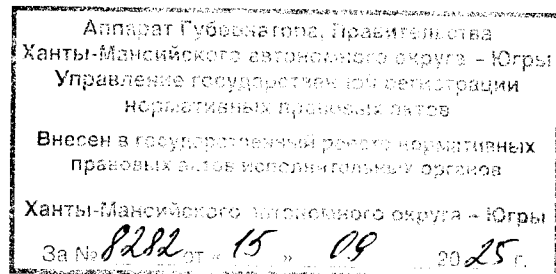 Аппарат Губернатора, Правительства
Ханты-Мансийского автономного округа – Югры
Управление государственной регистрации
нормативных правовых актов
Внесен в государственный реестр нормативных
правовых актов исполнительных органов
Ханты-Мансийского автономного округа – Югры
За № 8282 от « 15 » 09 20 25 г.